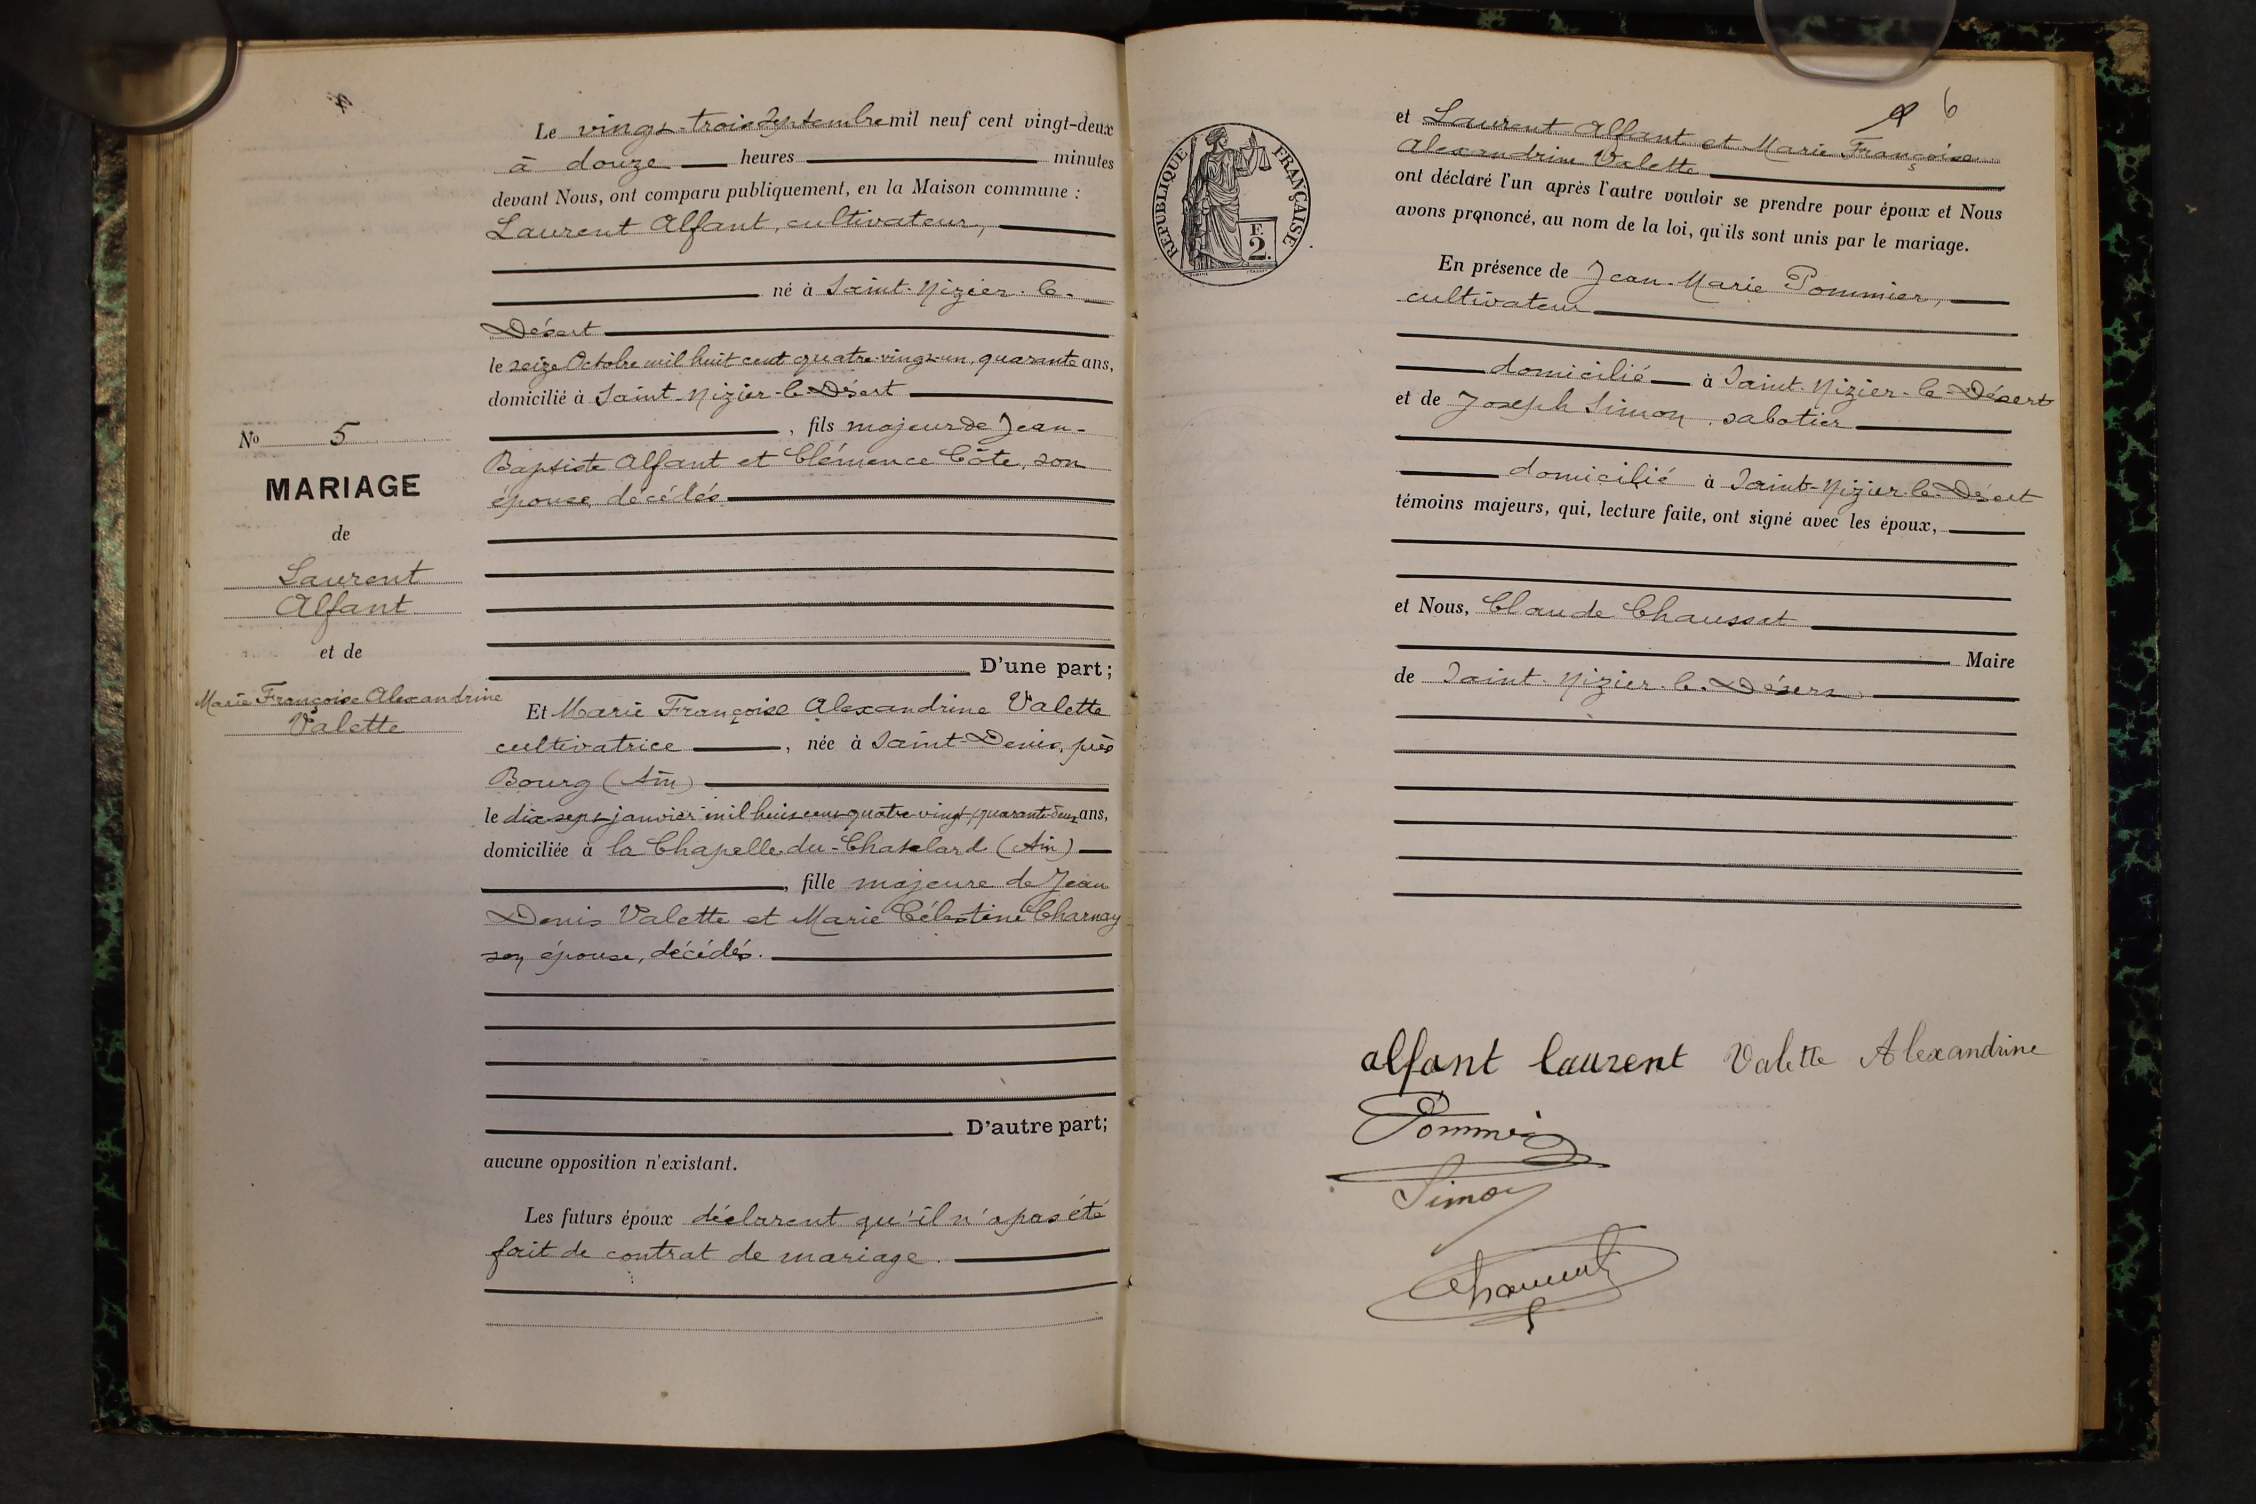 Le vingt-trois Septembre mil neuf cent vingt-deux
à douze heures minutes
devant Nous, ont comparu publiquement, en la Maison commune :
Laurent Alfant, cultivateur,
né à Saint-Nizier-le-
Désert
le seize Octobre mil huit cent quatre-vingt-un, quarante ans,
domicilié à Saint-Nizier-le-Désert
, fils majeur de Jean-
Baptiste Alfant et Clémence Côte, son
épouse, décédés
No 5
MARIAGE
de
Laurent
Alfant
et de
Marie Françoise Alexandrine
Valette
D'une part;
Et Marie Françoise Alexandrine Valette
cultivatrice , née à Saint-Denis, près
Bourg (Ain)
le dix-sept janvier mil huit cent quatre-vingt, quarante-deux ans,
domiciliée à la Chapelle-du-Chatelard (Ain)
, fille majeure de Jean
Denis Valette et Marie Célestine Charnay
son épouse, décédés.
D'autre part;
aucune opposition n'existant.
Les futurs époux déclarent qu'il n'a pas été
fait de contrat de mariage.
6
RÉPUBLIQUE FRANÇAISE
F.
2.
et Laurent Alfant et Marie Françoise
Alexandrine Valette
ont déclaré l'un après l'autre vouloir se prendre pour époux et Nous
avons prononcé, au nom de la loi, qu'ils sont unis par le mariage.
En présence de Jean-Marie Pommier,
cultivateur
domicilié à Saint-Nizier-le-Désert
et de Joseph Simon, sabotier
domicilié à Saint-Nizier-le-Désert
témoins majeurs, qui, lecture faite, ont signé avec les époux,
et Nous, Claude Chaussat
Maire
de Saint-Nizier-le-Désert
alfant laurent Valette Alexandrine
Pommier
Simon
Chaussat